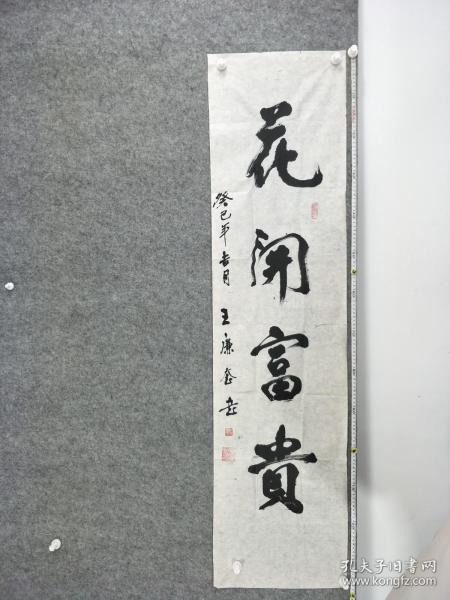 花開富貴
癸巳年吉月 王廉
孔夫子旧书网
www.kongfz.com